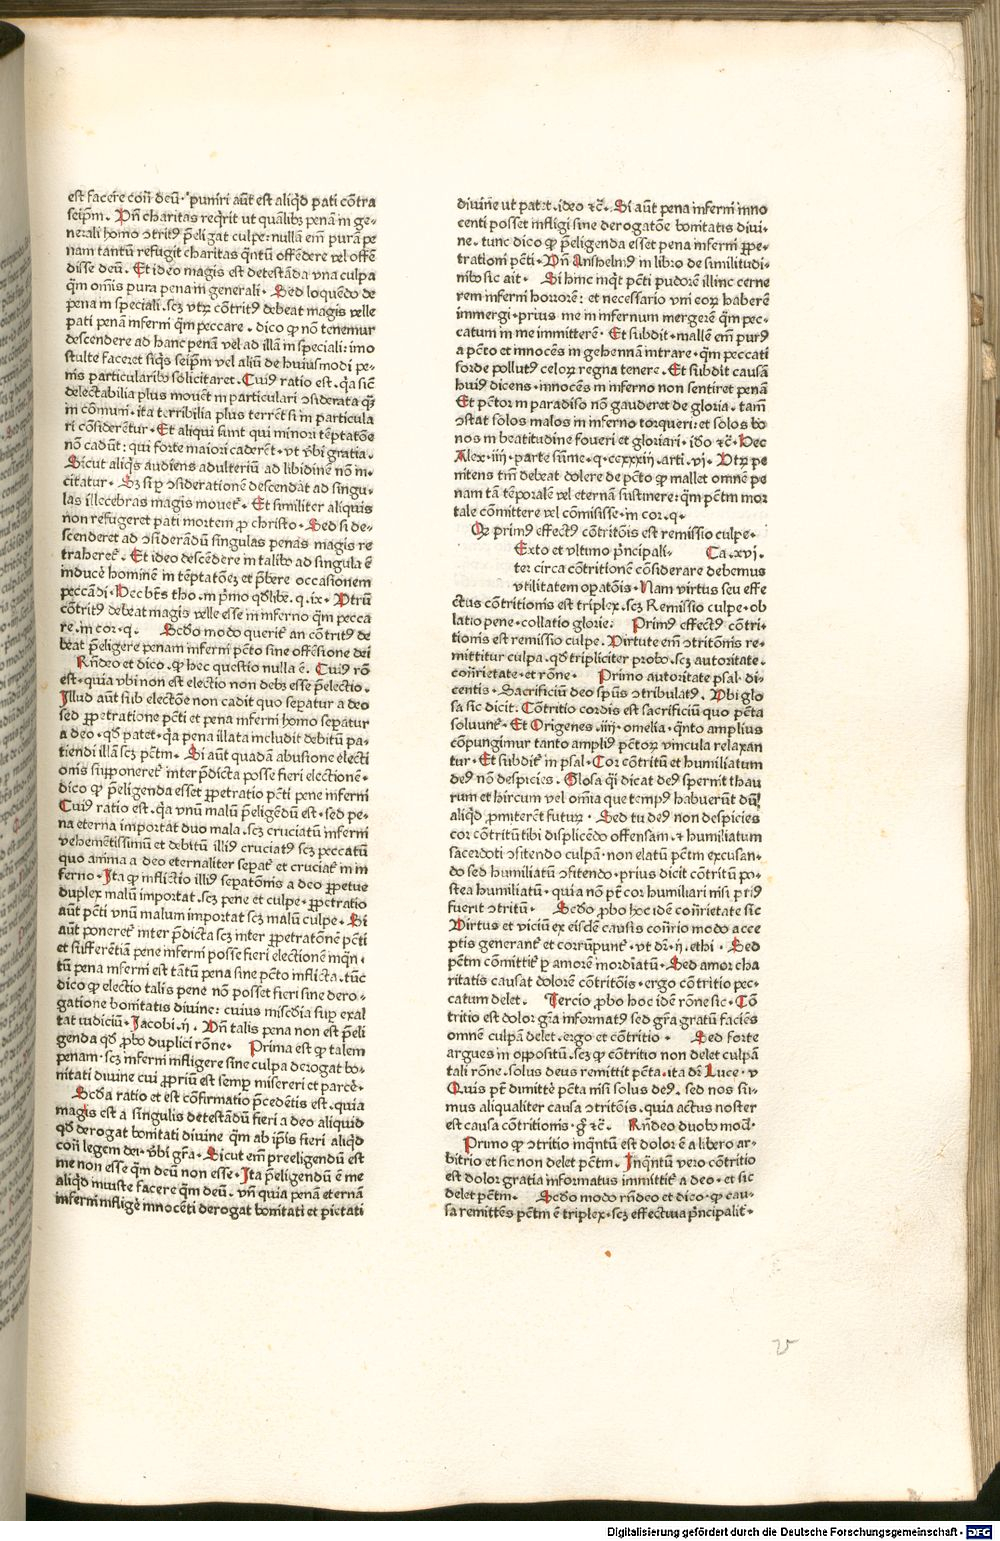 est facere cont̄ deū· puniri aūt est aliqd̄ pati cōtra
seip̄m. Vn̄ charitas reqrit ut quālibꝫ penā in ge⸗
nerali homo ↄtritꝰ p̄eligat culpe: nullā em̄ purā pe
nam tantū refugit charitas q̄ntū offēdere vel offē
disse deū. Et ideo magis est detestāda vna culpa
q̄m om̄is pura pena in generali. Sed loquēdo de
pena in speciali. scꝫ vtꝝ cōtritꝰ debeat magis velle
pati penā inferni q̄m peccare. dico ꝙ nō tenemur
descendere ad hanc penā vel ad illā in speciali: imo
stulte faceret siq̄s seip̄m vel aliū de huiusmodi pe⸗
nis particularibꝰ solicitaret. Cuiꝰ ratio est. q̄a sic̄
delectabilia plus mouēt in particulari ↄsiderata q̄ꝫ
in cōmuni. ita terribilia plus terrēt si in particula
ri cōsiderētur. Et aliqui sunt qui minori tēptatōe
nō cadūt: qui forte maiori caderēt. vt vbi gratia.
Sicut aliq̄s audiens adulteriū ad libidinē nō in⸗
citatur. Sꝫ si ꝑ ↄsiderationē descendāt ad singu⸗
las illecebras magis mouet᷑. Et similiter aliquis
non refugeret pati mortem ꝓ christo. Sed si de⸗
scenderet ad ↄsiderādū singulas penas magis re
traheret᷑. Et ideo descēdere in talibꝰ ad singula ē
inducē hominē in tēptatōeꝫ et p̄bere occasionem
peccādi. Hec btūs tho. in p̄mo qdlibꝫ. q. ix. Vtrū
cōtritꝰ debeat magis velle esse in inferno q̄m pecca
re. in cor. q. Scd̄o modo querit᷑ an cōtritꝰ de
beat p̄eligere penam inferni pēto sine offēsione dei
Rn̄deo et dico. ꝙ hec questio nulla ē. Cuiꝰ rō
est. quia vbi non est electio non debꝫ esse p̄electio.
Illud aūt sub electōe non cadit quo sepatur a deo
sed ꝑpetratione pc̄ti et pena inferni homo sepatur
a deo. qd̄ patet. q̄a pena illata includit debitū pa⸗
tiendi illā scꝫ pc̄tm. Si aūt quadā abusione electi
onis supponeret᷑ inter p̄dicta posse fieri electionē.
dico ꝙ p̄eligenda esset ꝑpetratio pc̄ti pene inferni
Cuiꝰ ratio est. q̄a vnū malū p̄eligēdū est. sed pe⸗
na eterna importat duo mala. scꝫ cruciatū inferni
vehemētissimū et debitū illiꝰ cruciatꝰ scꝫ peccatū
quo anima a deo eternaliter sepat᷑ et cruciat᷑ in in
ferno. Ita ꝙ inflictio illiꝰ sepatōnis a deo ꝑpetue
duplex malū importat. scꝫ pene et culpe. ꝑpetratio
aūt pc̄ti vnū malum importat scꝫ malū culpe. Si
aūt poneret᷑ inter p̄dicta scꝫ inter ꝑpetratōnē pc̄ti
et sufferētiā pene inferni posse fieri electionē inq̄n⸗
tū pena inferni est tātū pena sine pc̄to inflicta. tūc
dico ꝙ electio talis pene nō posset fieri sine dero⸗
gatione bonitatis diuine: cuius misc̄dia suꝑ exal
tat iudiciū. Jacobi. ij. Vn̄ talis pena non est p̄eli
genda qd̄ ꝓbo duplici rōne. Prima est ꝙ talem
penam. scꝫ inferni infligere sine culpa derogat bo⸗
nitati diuine cui ꝓpriū est semꝑ misereri et parcē.
Scd̄a ratio et est cōfirmatio p̄cedētis est. quia
magis est a singulis detestādū fieri a deo aliquid
qd̄ derogat bonitati diuine q̄m ab ip̄is fieri aliqd̄
cont̄ legem dei. vbi gr̄a. Sicut em̄ preeligendū est
me non esse q̄m deū non esse. Ita p̄eligendū ē me
aliqd̄ iniuste facere q̄m deū. vn̄ quia penā eternā
inferni infligē innocēti derogat bonitati et pietati
diuine ut patet. ideo ⁊c̄. Si aūt pena inferni inno
centi posset infligi sine derogatōe bonitatis diui⸗
ne. tunc dico ꝙ p̄eligenda esset pena inferni ꝑpe⸗
trationi pc̄ti. Vn̄ Anshelmꝰ in libro de similitudi⸗
nibꝰ sic ait. Si hinc inq̄t pc̄ti pudorē illinc cerne
rem inferni horrorē: et necessario vni eoꝝ haberē
immergi. prius me in infernum mergerē q̄m pec⸗
catum in me immitterē. Et subdit. mallē em̄ purꝰ
a pc̄to et innocēs in gehennā intrare. q̄m peccati
sorde pollutꝰ celoꝝ regna tenere. Et subdit causā
huiꝰ dicens. innocēs in inferno non sentiret penā
Et pc̄tor in paradiso nō gauderet de gloria. tam̄
ↄstat solos malos in inferno torqueri: et solos bo
nos in beatitudine foueri et gloriari. iō ⁊c̄. Hec
Alex. iiij. parte sūme. q. ccxxxiij. arti. vj. Vtꝝ pe
nitens tm̄ debeat dolere de pc̄to ꝙ mallet omnē pe
nam tā tēporalē vel eternā sustinere: q̄m pc̄tm mor
tale cōmittere vel cōmisisse. in cor. q.
Qꝫ primꝰ effectꝰ cōtritōis est remissio culpe.
Exto et vltimo p̄ncipali⸗ Ca. xvj.
ter circa cōtritionē cōsiderare debemus
vtilitatem opatōis. Nam virtus seu effe
ctus cōtritionis est triplex. scꝫ Remissio culpe. ob
latio pene. collatio glorie: Primꝰ effectꝰ cōtri⸗
tionis est remissio culpe. Virtute em̄ ↄtritōnis re⸗
mittitur culpa. qd̄ tripliciter probo. scꝫ autoritate.
cont̄rietate. et rōne. Primo autoritate psal. di⸗
centis. Sacrificiū deo spūs ↄtribulatꝰ. Vbi glo
sa sic dicit. Cōtritio cordis est sacrificiū quo pc̄ta
soluunt᷑. Et Origenes. iiij. omelia. q̄nto amplius
cōpungimur tanto ampliꝰ pc̄toꝝ vincula relaxan
tur. Et subdit᷑ in psal. Cor cōtritū et humiliatum
deꝰ nō despicies. Glosa q̄i dicat deꝰ spernit thau
rum et hircum vel om̄ia que tempꝰ habuerūt dū
aliqd̄ ꝓmitterēt futuꝝ. Sed tu deꝰ non despicies
cor cōtritū tibi displicēdo offensam. ⁊ humiliatum
sacerdoti ↄfitendo culpā. non elatū pc̄tm excusan⸗
do sed humiliatū ↄfitendo. prius dicit cōtritū po⸗
stea humiliatū. quia nō pt̄ cor humiliari nisi priꝰ
fuerit ↄtritū. Scd̄o ꝓbo hoc idē cont̄rietate sic
Virtus et viciū ex eisdē causis cont̄rio modo acce
ptis generant᷑ et corrūpunt᷑. vt dr̄. ij. ethi. Sed
pc̄tm cōmittit᷑ ꝑ amorē inordinatū. Sed amor cha
ritatis causat dolorē cōtritōis. ergo cōtritio pec⸗
catum delet. Tercio ꝓbo hoc idē rōne sic. Cō
tritio est dolor gr̄a informatꝰ sed gr̄a gratū faciēs
omnē culpā delet. ergo et cōtritio. Sed forte
argues in oppositū. scꝫ ꝙ cōtritio non delet culpā
tali rōne. solus deus remittit pc̄ta. ita dr̄ Luce. v
Quis pt̄ dimittē pc̄ta nisi solus deꝰ. sed nos su⸗
mus aliqualiter causa ↄtritōis. quia actus noster
est causa cōtritionis. g̊ ⁊c̄. Rn̄deo duobꝰ modꝭ.
Primo ꝙ ↄtritio inq̄ntū est dolor ē a libero ar⸗
bitrio et sic non delet pc̄tm. Inq̄ntū vero cōtritio
est dolor gratia informatus immittit᷑ a deo. et sic
delet pc̄tm. Scd̄o modo rn̄deo et dico. ꝙ cau⸗
sa remittēs pc̄tm ē triplex. scꝫ effectiua p̄ncipalit᷑.
Digitalisierung gefördert durch die Deutsche Forschungsgemeinschaft - DFG